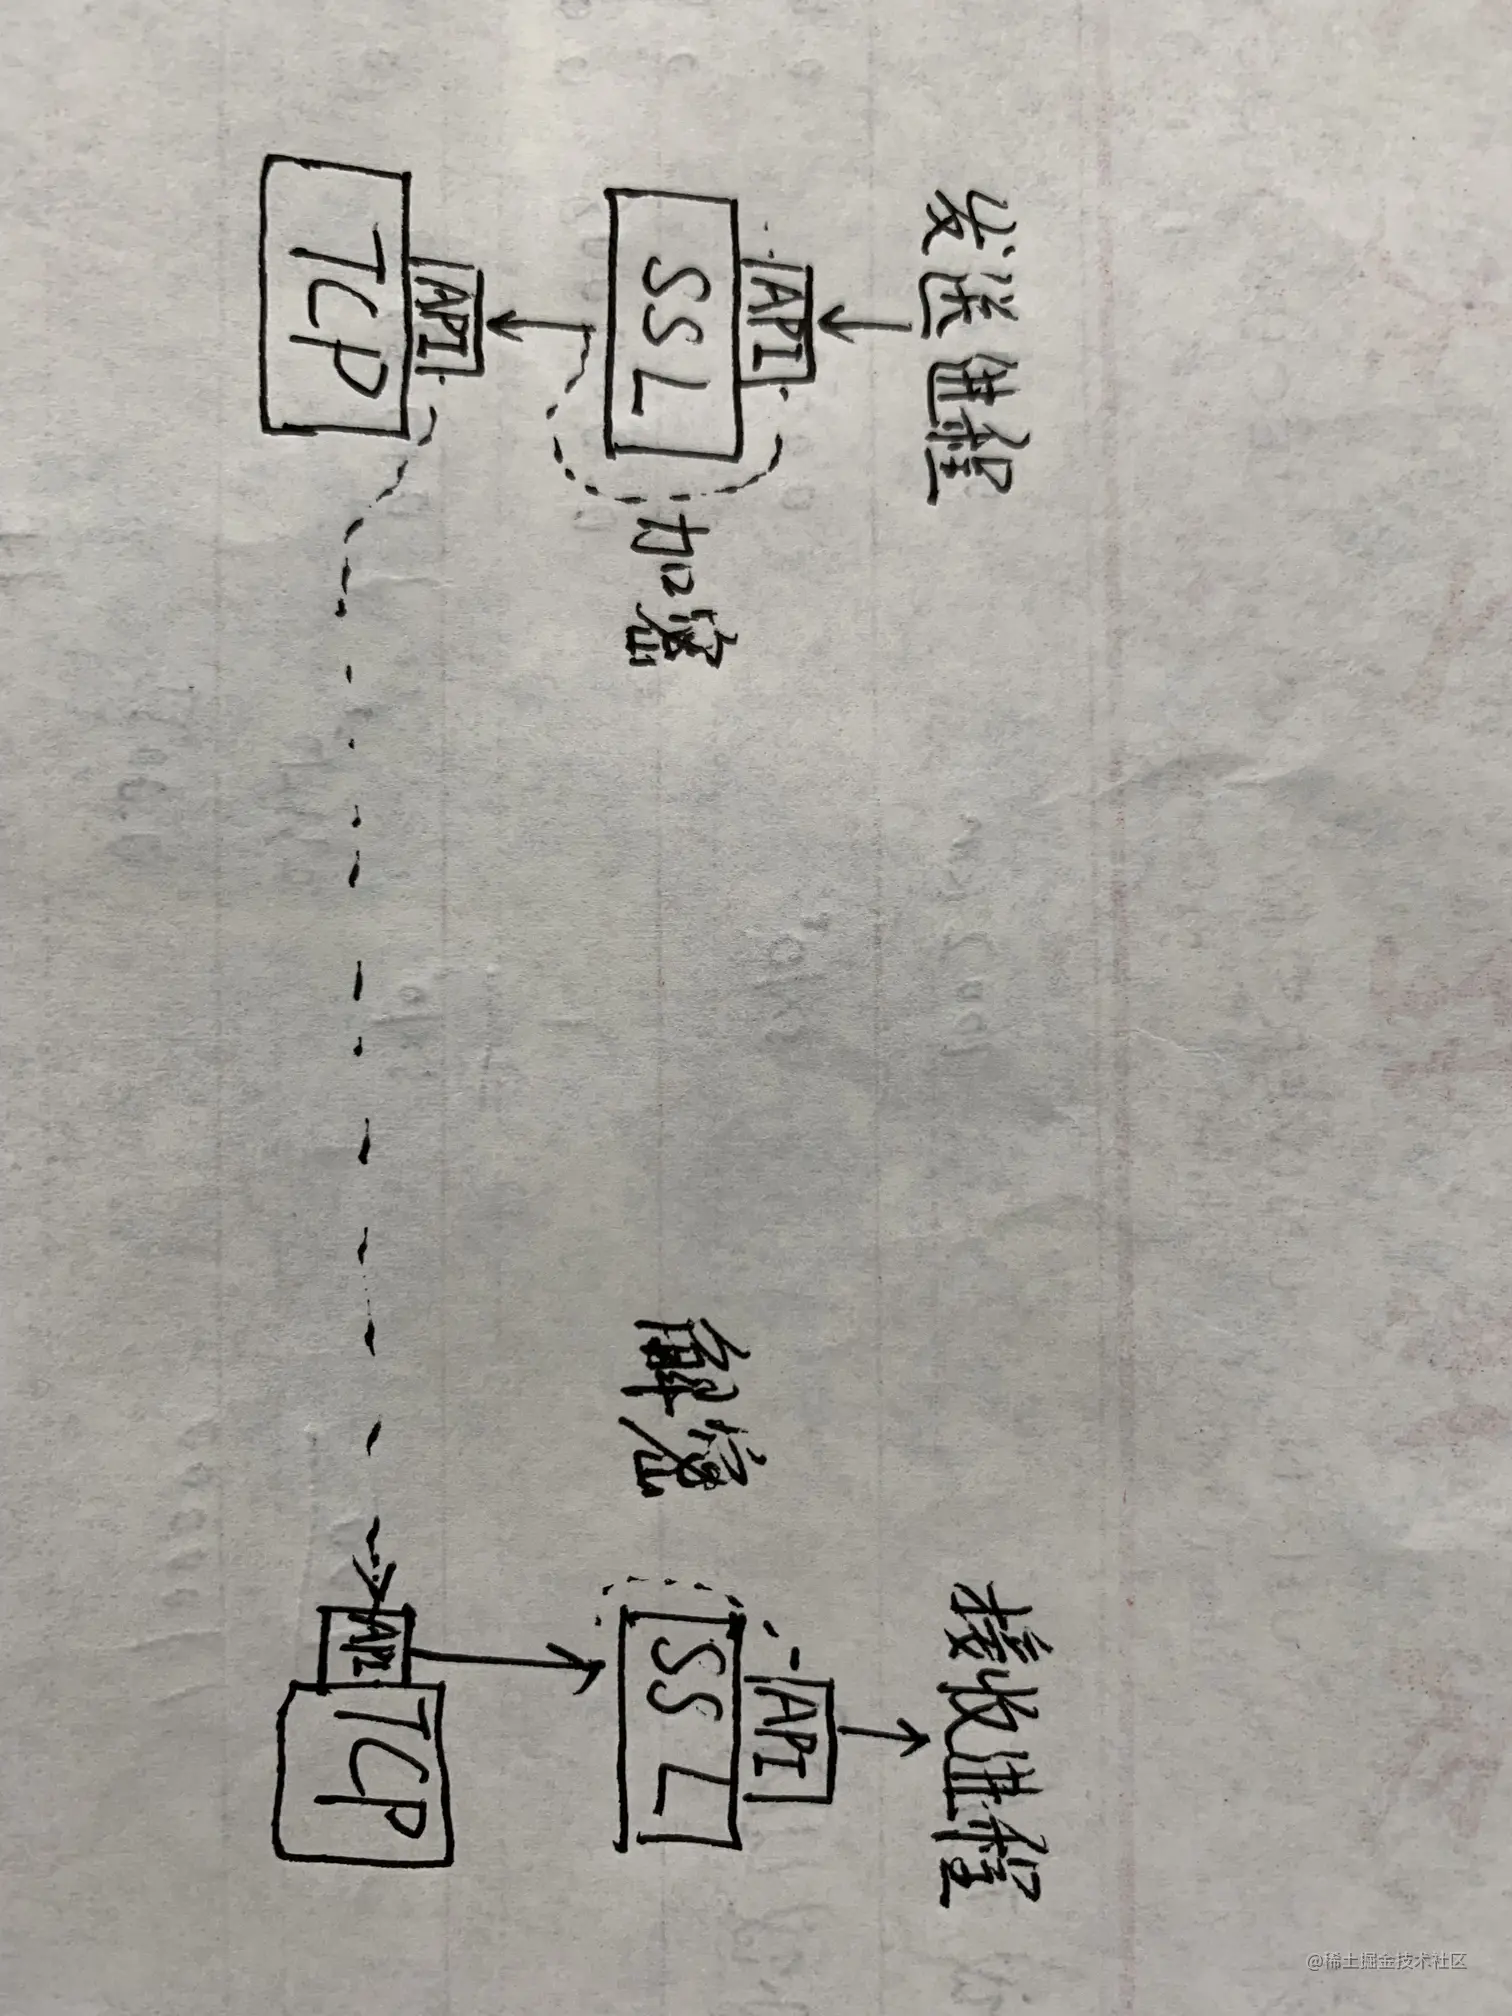 发送进程
接收进程
API
API
SSL
加密
解密
SSL
API
API
TCP
TCP
@稀土掘金技术社区